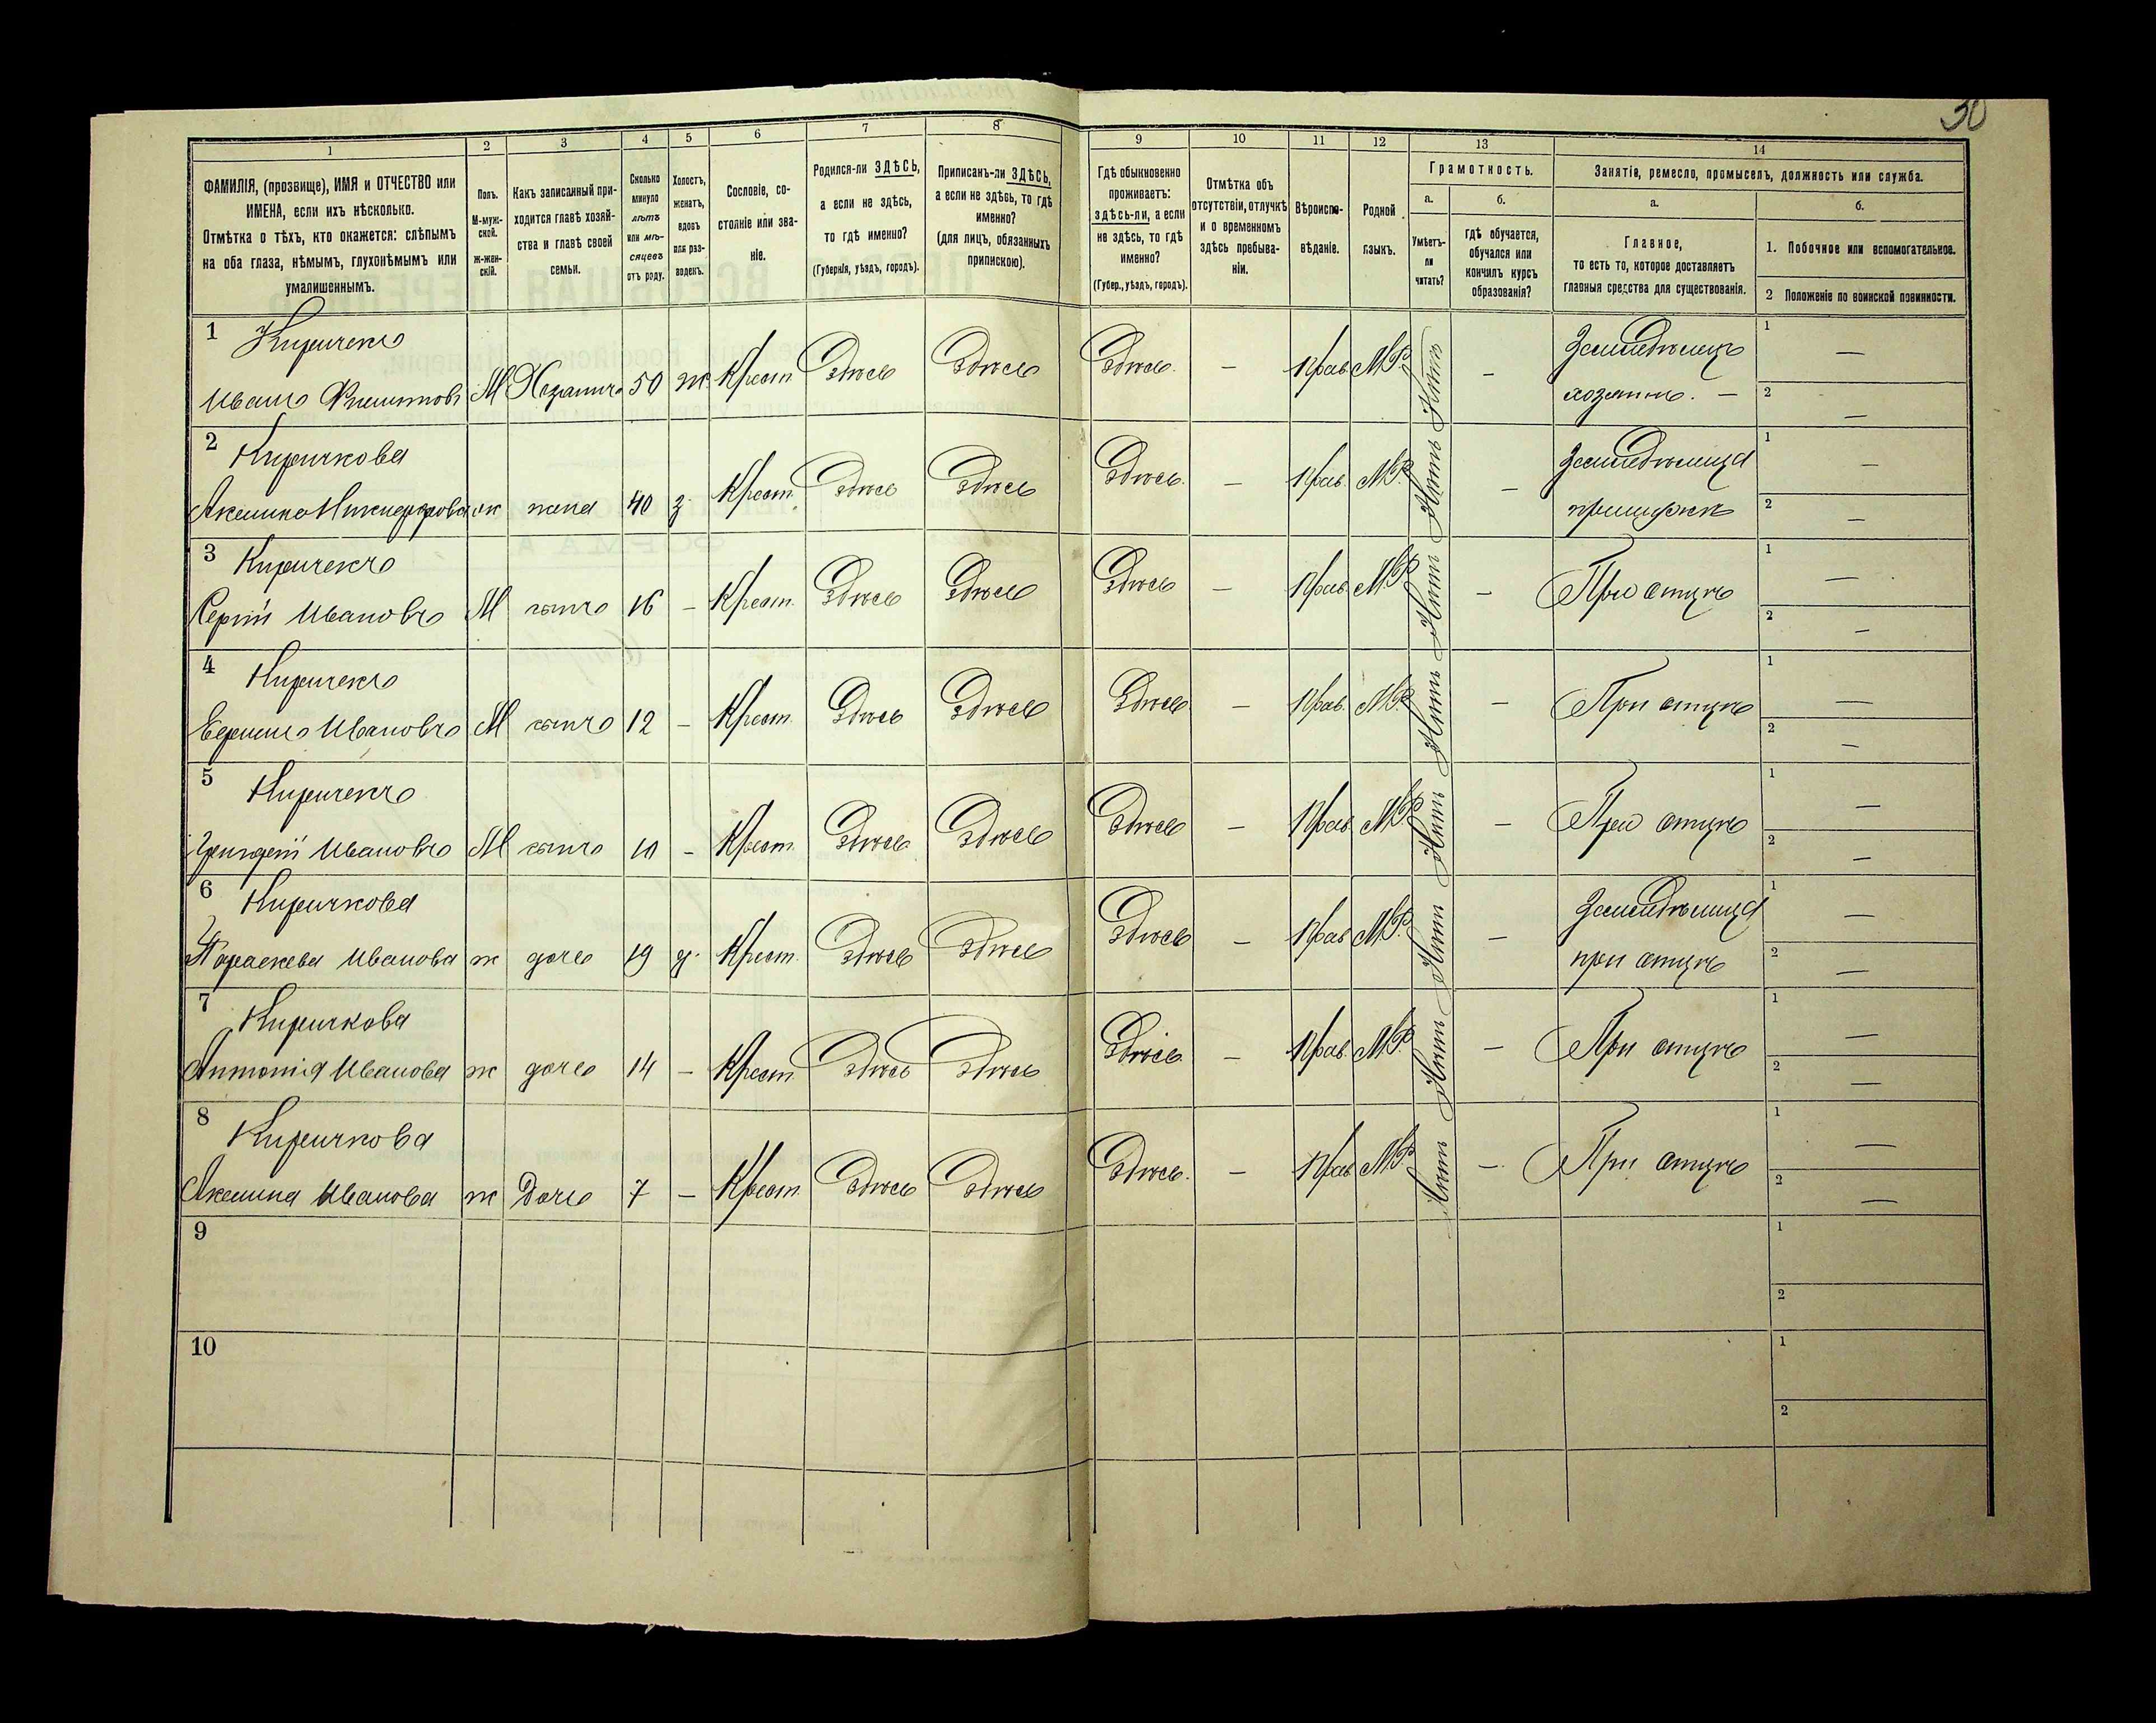 30
1
2
3
4
5
6
7
8
9
10
11
12
13
14
ФАМИЛІЯ, (прозвище), ИМЯ и ОТЧЕСТВО или
ИМЕНА, если ихъ нѣсколько.
Отмѣтка о тѣхъ, кто окажется: слѣпымъ
на оба глаза, нѣмымъ, глухонѣмымъ или
умалишеннымъ.
Полъ.
М-муж-
ской.
ж-жен-
скій.
Какъ записанный при-
ходится главѣ хозяй-
ства и главѣ своей
семьи.
Сколько
минуло
лѣтъ
или мѣ-
сяцевъ
отъ роду.
Холостъ,
женатъ,
вдовъ
или раз-
веденъ.
Сословіе, со-
стояніе или зва-
ніе.
Родился-ли ЗДѢСЬ,
а если не здѣсь,
то гдѣ именно?
(Губернія, уѣздъ, городъ).
Приписанъ-ли ЗДѢСЬ,
а если не здѣсь, то гдѣ
именно?
(для лицъ, обязанныхъ
припискою).
Гдѣ обыкновенно
проживаетъ:
здѣсь-ли, а если
не здѣсь, то гдѣ
именно?
(Губер., уѣздъ, городъ).
Отмѣтка объ
отсутствіи, отлучкѣ
и о временномъ
здѣсь пребыва-
ніи.
Вѣроиспо-
вѣданіе.
Родной
языкъ.
Грамотность.
а.
Умѣетъ-
ли
читать?
б.
гдѣ обучается,
обучался или
кончилъ курсъ
образованія?
Занятіе, ремесло, промыселъ, должность или служба.
а.
Главное,
то есть то, которое доставляетъ
главныя средства для существованія.
б.
1. Побочное или вспомогательное.
2 Положеніе по воинской повинности.
1 Киричекъ
Иванъ М Хозяинъ 50 ж. Крест. Здѣсь Здѣсь Здѣсь. — Прав. М.Р. Нѣтъ — Земледѣлецъ
хозяинъ. —
1 —
2 —
2 Киричкова
Акелина Никифорова ж жена 40 з. Крест. Здѣсь Здѣсь Здѣсь. — Прав. М.Р. Нѣтъ — Земледѣлица
при мужѣ
1 —
2 —
3 Киричекъ
Сергій Ивановъ М сынъ 16 — Крест. Здѣсь Здѣсь Здѣсь — Прав. М.Р. Нѣтъ — При отцѣ
1 —
2 —
4 Киричекъ
Ивановъ М сынъ 12 — Крест. Здѣсь Здѣсь Здѣсь — Прав. М.Р. Нѣтъ — При отцѣ
1 —
2 —
5 Киричекъ
Ивановъ М сынъ 10 — Крест. Здѣсь Здѣсь Здѣсь — Прав. М.Р. Нѣтъ — При отцѣ
1 —
2 —
6 Киричкова
Параскева Иванова ж дочь 19 д. Крест. Здѣсь Здѣсь Здѣсь — Прав. М.Р. Нѣтъ — Земледѣлица
при отцѣ
1 —
2 —
7 Киричкова
Антонія Иванова ж дочь 14 — Крест. Здѣсь Здѣсь Здѣсь — Прав. М.Р. Нѣтъ — При отцѣ
1 —
2 —
8 Киричкова
Акелина Иванова ж Дочь 7 — Крест. Здѣсь Здѣсь Здѣсь. — Прав. М.Р. Нѣтъ — При отцѣ
1 —
2 —
9
1
2
10
1
2